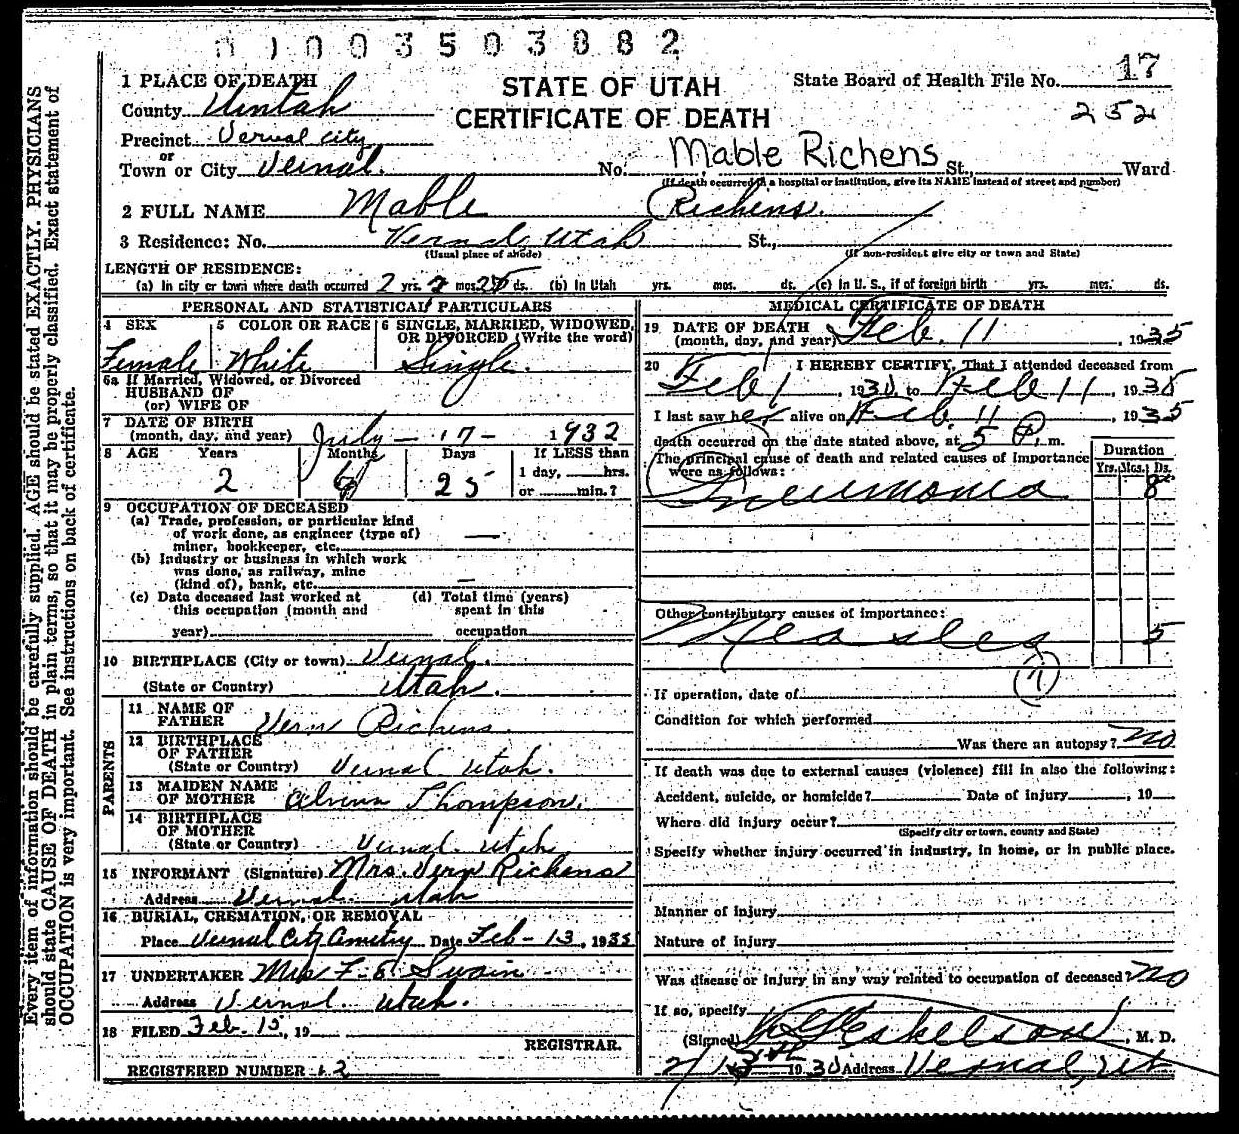 003503882
1 PLACE OF DEATH
STATE OF UTAH
CERTIFICATE OF DEATH
State Board of Health File No. 17
252
County Uintah
Precinct Vernal City
or
Town or City Vernal. No. Mable Richens St., Ward
(If death occurred in a hospital or institution, give its NAME instead of street and number)
2 FULL NAME Mable Richens.
3 Residence: No. Vernal, Utah St.,
(Usual place of abode) (If non-resident give city or town and State)
LENGTH OF RESIDENCE:
(a) In city or town where death occurred 2 yrs. mos. 25 ds. (b) In Utah yrs. mos. ds. (c) In U. S., if of foreign birth yrs. mos. ds.
PERSONAL AND STATISTICAL PARTICULARS
4 SEX 5 COLOR OR RACE 6 SINGLE, MARRIED, WIDOWED,
OR DIVORCED (Write the word)
Female White Single.
6a If Married, Widowed, or Divorced
HUSBAND OF
(or) WIFE OF
7 DATE OF BIRTH
(month, day, and year) July - 17 - 1932
8 AGE Years Months Days If LESS than
1 day, hrs.
or min.?
2 6 25
9 OCCUPATION OF DECEASED
(a) Trade, profession, or particular kind
of work done, as engineer (type of)
miner, bookkeeper, etc. —
(b) Industry or business in which work
was done, as railway, mine
(kind of), bank, etc. —
(c) Date deceased last worked at (d) Total time (years)
this occupation (month and spent in this
year) occupation
10 BIRTHPLACE (City or town) Vernal.
(State or Country) Utah.
PARENTS
11 NAME OF
FATHER Vern Richens.
12 BIRTHPLACE
OF FATHER
(State or Country) Vernal Utah.
13 MAIDEN NAME
OF MOTHER Thompson.
14 BIRTHPLACE
OF MOTHER
(State or Country) Vernal. Utah
15 INFORMANT (Signature) Mrs. Vern Richens
Address Vernal. Utah
16 BURIAL, CREMATION, OR REMOVAL
Place Vernal City Cemetry Date Feb - 13, 1935
17 UNDERTAKER Mrs F. E Swain
Address Vernal. Utah.
18 FILED Feb. 15, 19
REGISTRAR.
REGISTERED NUMBER 12
MEDICAL CERTIFICATE OF DEATH
19 DATE OF DEATH
(month, day, and year) Feb. 11, 1935
20 I HEREBY CERTIFY, That I attended deceased from
Feb 1, 1935, to Feb 11, 1935
I last saw her alive on Feb. 11, 1935
death occurred on the date stated above, at 5 P. m.
The principal cause of death and related causes of importance
were as follows:
Duration
Yrs. Mos. Ds.
Pneumonia 8
Other contributory causes of importance:
Measles 5
(7)
If operation, date of
Condition for which performed
Was there an autopsy? no
If death was due to external causes (violence) fill in also the following:
Accident, suicide, or homicide? Date of injury, 19
Where did injury occur?
(Specify city or town, county and State)
Specify whether injury occurred in industry, in home, or in public place.
Manner of injury
Nature of injury
Was disease or injury in any way related to occupation of deceased? no
If so, specify
(Signed) Eskelson, M. D.
19 Address Vernal, Ut
Every item of information should be carefully supplied. AGE should be stated EXACTLY. PHYSICIANS
should state CAUSE OF DEATH in plain terms, so that it may be properly classified. Exact statement of
OCCUPATION is very important. See instructions on back of certificate.